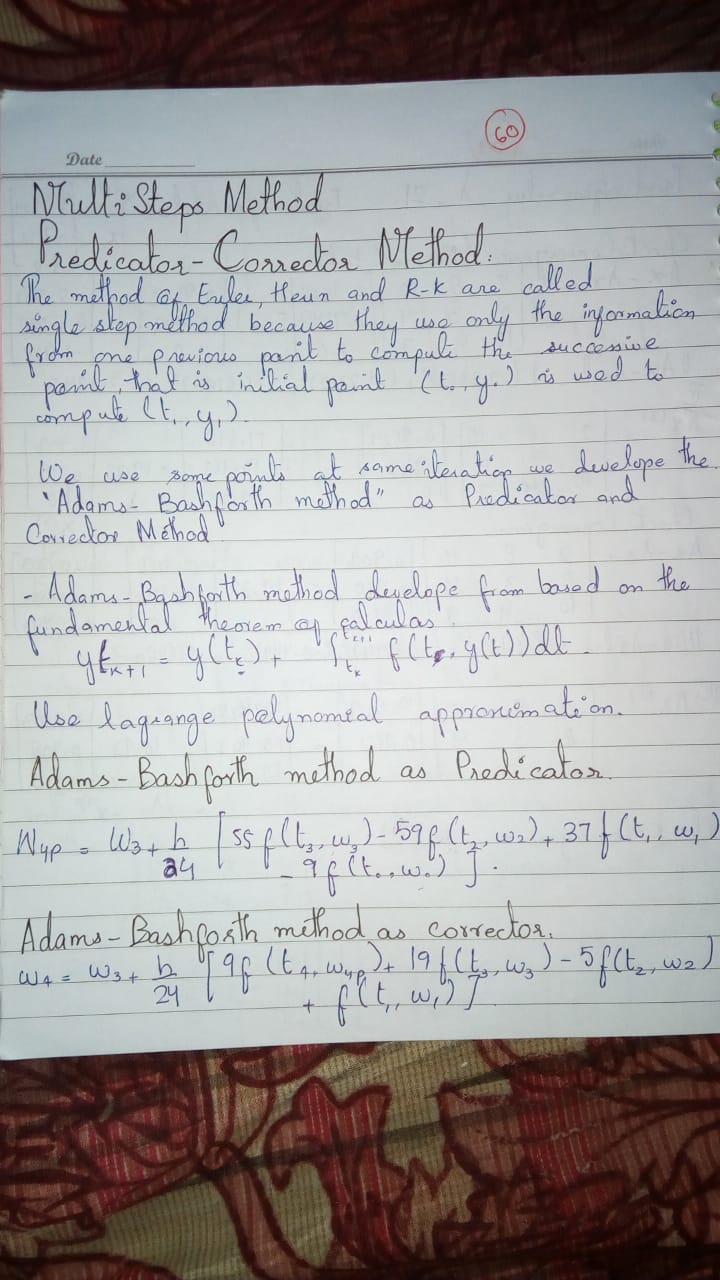 60
Date
Multi Steps Method
Predicator-Corrector Method.
The method of Euler, Heun and R-K are called
single step method because they use only the information
from one previous point to compute the successive
point, that is initial point (t₀, y₀) is used to
compute (t₁, y₁).
We use some points at same iteration we develope the
"Adams-Bashforth method" as Predicator and
Corrector Method.
- Adams-Bashforth method develope from based on the
fundamental theorem of calculas.
yt_{k+1} = y(t_k) + ∫_{t_k}^{t_{k+1}} f(t, y(t)) dt.
Use lagrange polynomial approximation.
Adams-Bashforth method as Predicator.
W₄p = W₃ + h/24 [55 f(t₃, w₃) - 59 f(t₂, w₂) + 37 f(t₁, w₁)
- 9 f(t₀, w₀)].
Adams-Bashforth method as corrector.
w₄ = w₃ + h/24 [9 f(t₄, w₄p) + 19 f(t₃, w₃) - 5 f(t₂, w₂)
+ f(t₁, w₁)]